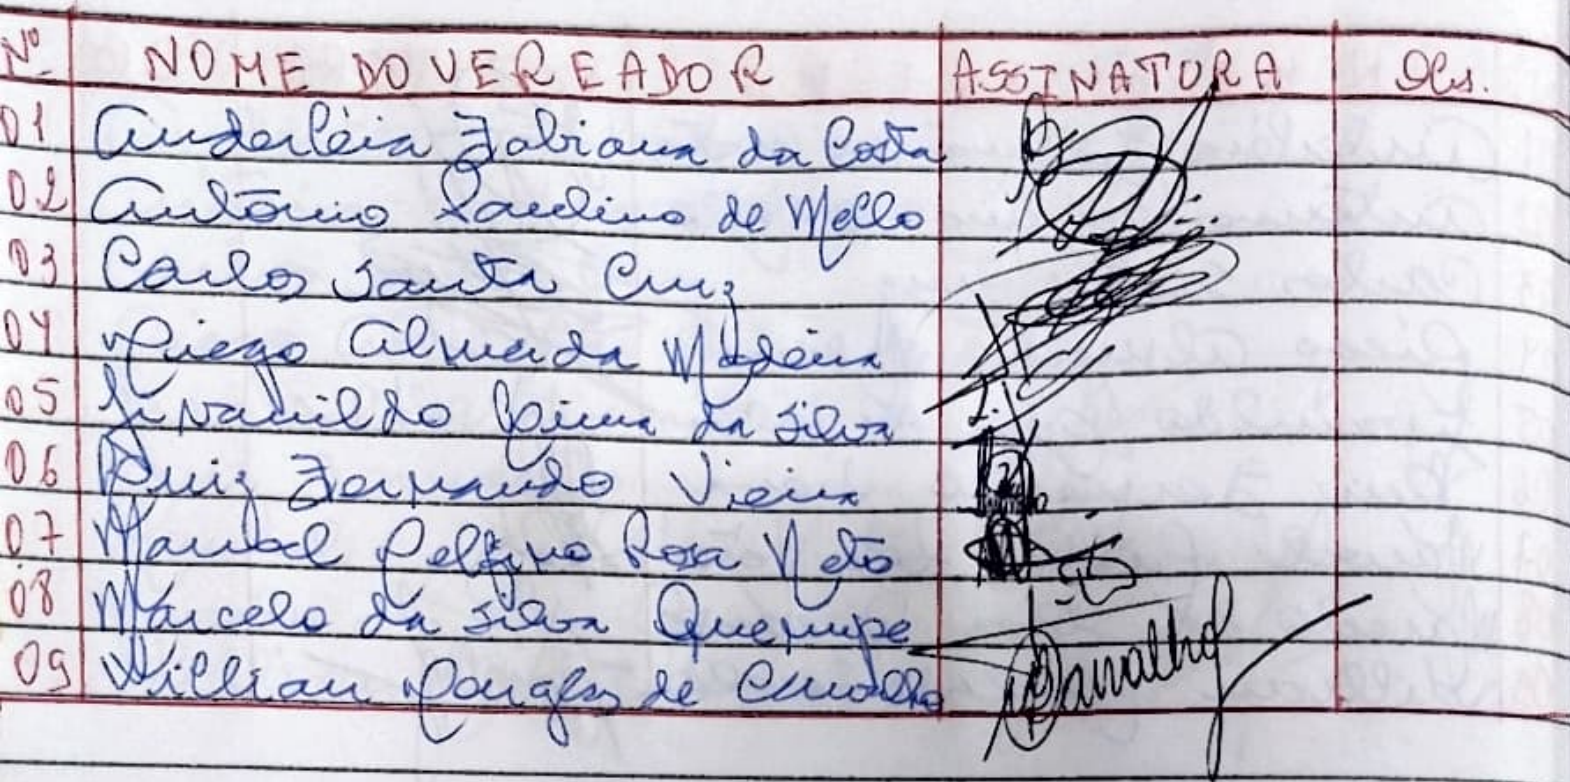 Nº NOME DO VEREADOR ASSINATURA Obs.
01 Anderléia Fabiana da Costa
02 Antônio Paulino de Mello
03 Carlos Santa Cruz
04 Diego Almeida Madeira
05 Jivanildo Quima da Silva
06 Luiz Fernando Vieira
07 Manoel Delfino Rosa Neto
08 Marcelo da Silva Querupe
09 Willian Douglas de Carvalho Carvalho